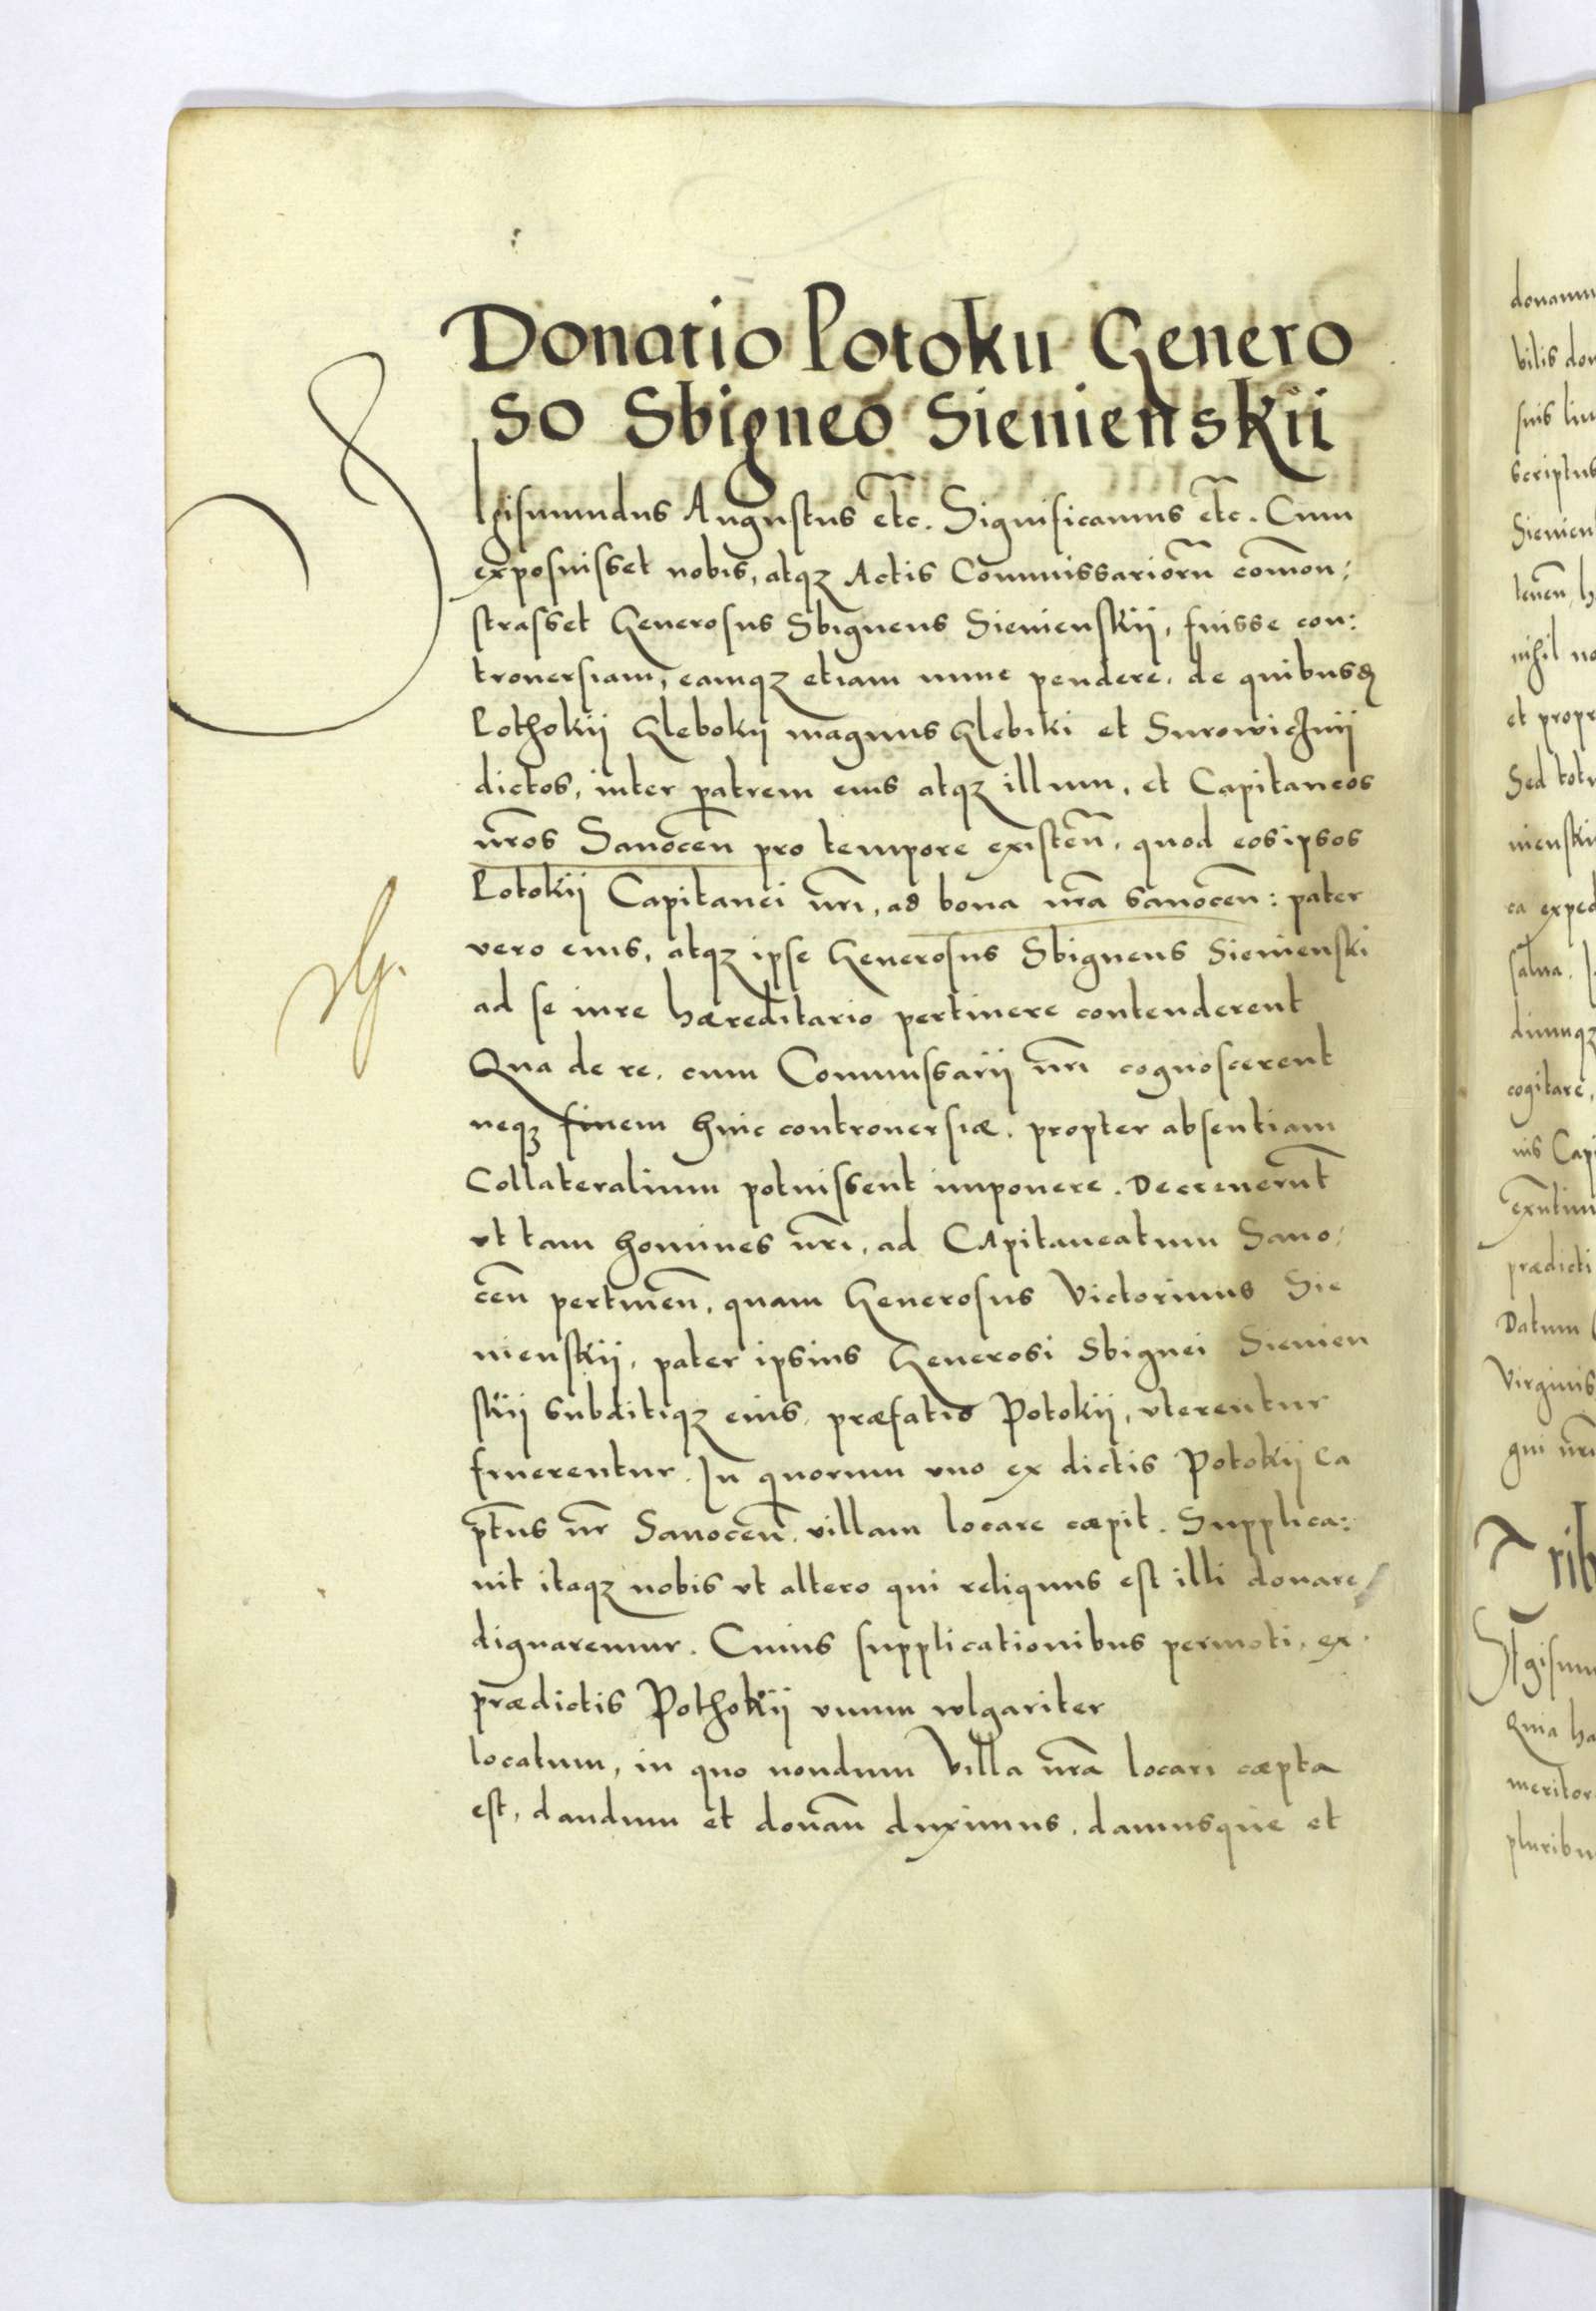 Donatio Potoku Genero
so Sbigneo Sienienskii
Sigismundus Augustus etc. Significamus etc. Cum
exposuisset nobis, atqz Actis Commissariorū com̄on:
strasset Generosus Sbigneus Sienienskii, fuisse con:
trouersiam, eamqz etiam nunc pendere, de quibusd
Pothokij Glebokij magnus Glebiki et
dictos, inter patrem eius atqz illum, et Capitaneos
n̄ros Sanocen̄ pro tempore existen̄, quod eos ipsos
Potokij Capitanei n̄ri, ad bona n̄ra sanocen̄: pater
vero eius, atqz ipse Generosus Sbigneus Sienienski
ad se iure hæreditario pertinere contenderent
Qua de re, cum Commissarij n̄ri cognoscerent
neqz finem huic controuersiæ, propter absentiam
Collateralium potuissent imponere. Decreuerūt
vt tam homines n̄ri, ad Capitaneatum Sano:
cen̄ pertinen̄, quam Generosus Victorinus Sie
nienskij, pater ipsius Generosi Sbignei Sienien
skij subditiqz eius, præfatis Potokij, vterentur
fruerentur. In quorum vno ex dictis Potokij Ca
pt̄us n̄r Sanocen̄ villam locare cæpit. Supplica:
uit itaqz nobis vt altero qui reliquus est illi donare
dignaremur. Cuius supplicationibus permoti, ex
prædictis Pothokij vnum vulgariter
locatum, in quo nondum Villa n̄ra locari cæpta
est, dandum et donan̄ duximus, damusque et
donamu
bilis don
suis
scriptus
Sienien
tenen̄
nihil no
et propr
Sed totu
nienski
ca exped
salua.
diumqz
cogitare,
nis Capi
prædicti
Datum
Virginis
gni n̄ri
Trib
Sigismu
Quia ha
meritor
pluribu